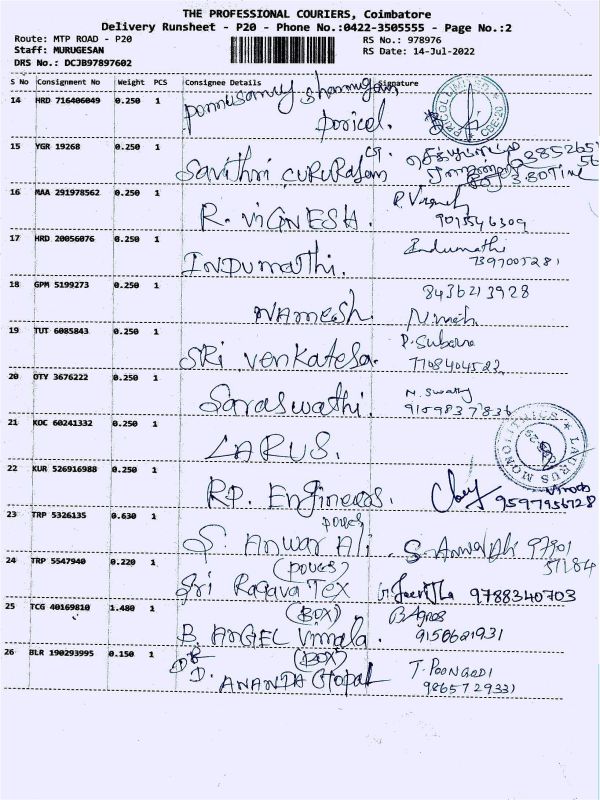 THE PROFESSIONAL COURIERS, Coimbatore
Delivery Runsheet - P20 - Phone No.:0422-3505555 - Page No.:2
Route: MTP ROAD - P20 RS No.: 978976
Staff: MURUGESAN RS Date: 14-Jul-2022
DRS No.: DCJB97897602
S No Consignment No Weight PCS Consignee Details Signature
14 HRD 716406049 0.250 1 Ponnusamy Shanmugam
15 YGR 19268 0.250 1 Savithri GURURajam
16 MAA 291978562 0.250 1 R. VIGNESH. R. Vignesh
9015546309
17 HRD 20056076 0.250 1 INDUMathi. Indumathi
7397005281
18 GPM 5199273 0.250 1 NAMESH. 8436213928
19 TUT 6085843 0.250 1 SRI Venkatesa. P. Subarna
7708404522
20 OTY 3676222 0.250 1 Saraswathi. N. Swathy
9159837836
21 KOC 60241332 0.250 1 LARUS. LARUS MONOLITHICS
22 KUR 526916988 0.250 1 RP. Engineers. Vinoth
9597956728
23 TRP 5326135 0.630 1 S. Anwar Ali. (Pouch) S. Anwar Ali 97901
57184
24 TRP 5547940 0.220 1 Sri Ragava Tex (Pouch) 9788340703
25 TCG 40169810 1.480 1 B. ANGEL Vimala. (BOX) B. Agnes
9150621931
26 BLR 190293995 0.150 1 D. ANANDA Gopal (BOX) T. Poongodi
9865729331